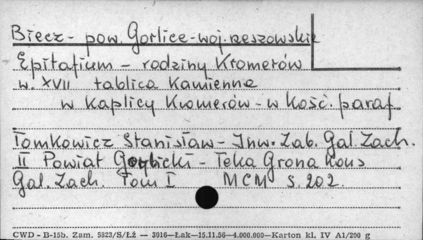 Biecz - pow. Gorlice - woj. rzeszowskie
Epitafium - rodziny Kromerów
w. XVII tablica kamienna
w Kaplicy Kromerów - w Kość. paraf
Tomkowicz Stanisław - Inw. Zab. Gal. Zach.
II Powiat Gorlicki - Teka Grona Kons
Gal. Zach. Tom I MCM s. 202.
CWD - B-15b. Zam. 5823/S/Łż — 3916—Łak—15.11.56—4.000.000—Karton kl. IV A1/200 g